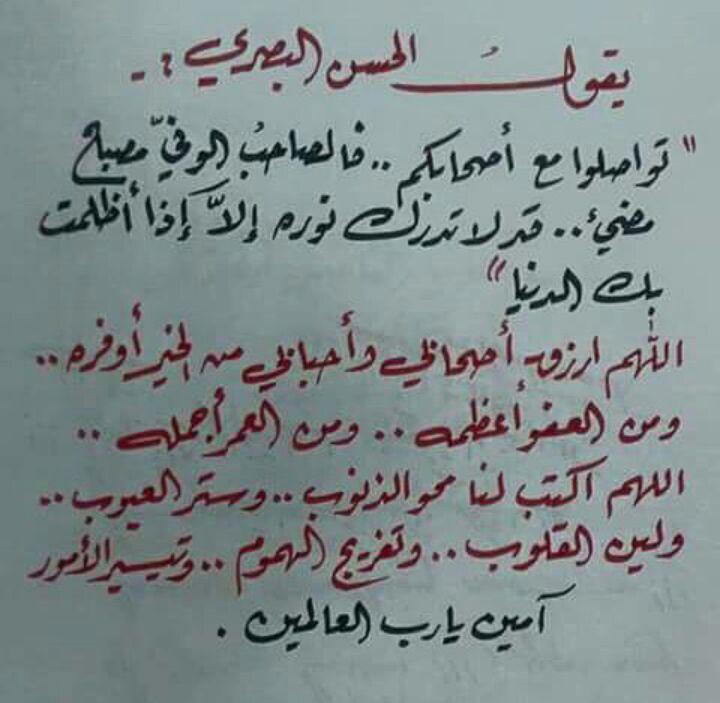 يقولُ الحسن البصري :-
"تواصلوا مع أصحابكم .. فالصاحبُ الوفيّ مصباح
مضيءُ .. قد لا تدرك نوره إلاَّ إذا أظلمت
بك الدنيا"
اللهم ارزق أصحابي وأحبابي من الخير أوفره ..
ومن العفو أعظمه .. ومن العمر أجمله ..
اللهم اكتب لنا محو الذنوب .. وستر العيوب ..
ولين القلوب .. وتفريج الهموم .. وتيسير الأمور
آمين يارب العالمين .